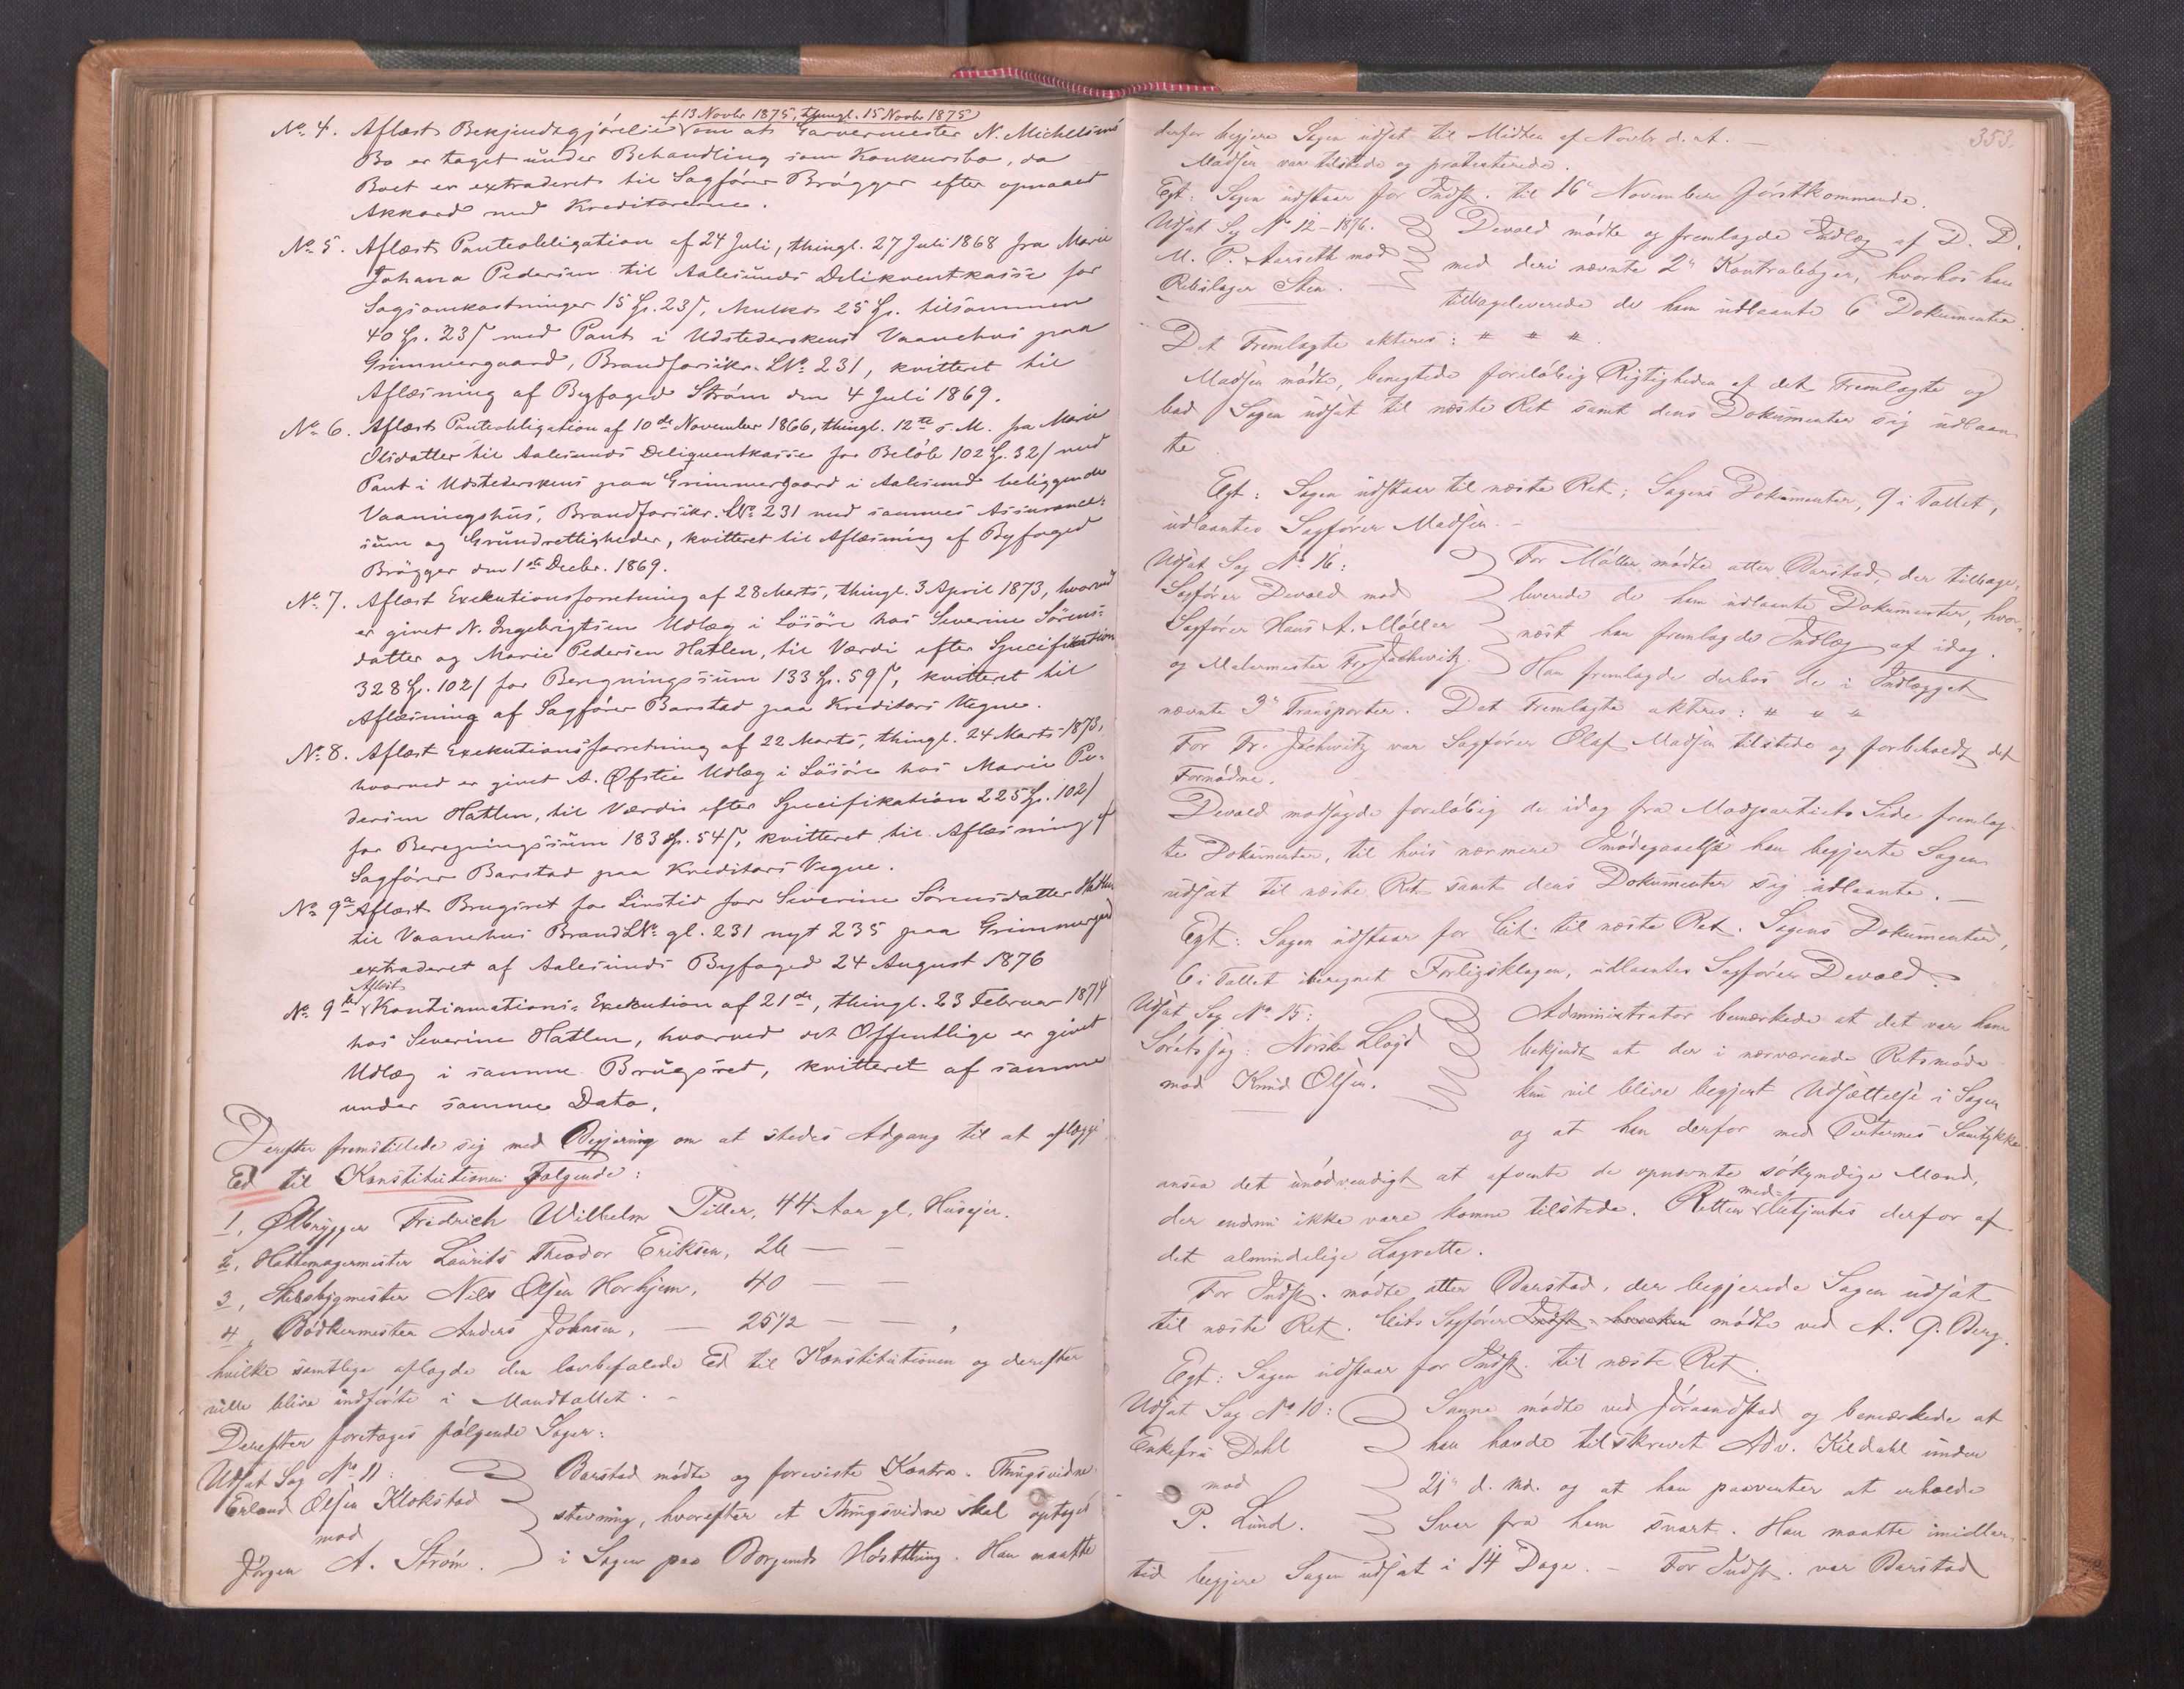 + 13 Novbr 1875, thingl. 15 Novbr 1875
No 4. Aflæst Bekjendtgjørelse om at Garvermester N. Michelsens
Bo er taget under Behandling som Konkursbo, da
Boet er extraderet til Sagfører Brøgger efter opnaaet
Akkord med Kreditorerne.
No 5. Aflæst Panteobligation af 24 Juli, thingl. 27 Juli 1868 fra Marie
Johana Pedersen til Aalesunds Delikventkasse for
Sagsomkostninger 15 Sp. 23 s, Mulkt 25 Sp. tilsammen
40 Sp. 23 s med Pant i Udstederskens Vaanehus paa
Grimmergaard, Brandforsikr. LNo 231, kvitteret til
Aflæsning af Byfoged Strøm den 4 Juli 1869.
No 6. Aflæst Panteobligation af 10de November 1866, thingl. 12te s. M. fra Marie
Olsdatter til Aalesunds Deliquentkasse for Beløb 102 Sp. 32 s med
Pant i Udstederskens paa Grimmergaard i Aalesund beliggende
Vaaningshus, Brandforsikr. LNo 231 med sammes Assurance-
sum og Grundrettigheder, kvitteret til Aflæsning af Byfoged
Brøgger den 1ste Decbr. 1869.
No 7. Aflæst Exekutionsforretning af 28 Marts, thingl. 3 April 1873, hvorved
er givet N. Ingebrigtsen Udlæg i Løsøre hos Severine Sørens-
datter og Marie Pedersen Hatlen, til Værdi efter Specifikation
328 Sp. 102 s for Beregningssum 133 Sp. 59 s, kvitteret til
Aflæsning af Sagfører Barstad paa Kreditors Vegne.
No 8. Aflæst Exekutionsforretning af 22 Marts, thingl. 24 Marts 1873,
hvorved er givet A. Øfstie Udlæg i Løsøre hos Marie Pe-
dersen Hatlen, til Værdi efter Specifikation 225 Sp. 102 s
for Beregningssum 183 Sp. 54 s, kvitteret til Aflæsning af
Sagfører Barstad paa Kreditors Vegne.
No 9a Aflæst Brugsret for Livstid for Severine Sørensdatter Hatlen
til Vaanehus Brand LNo gl. 231 nyt 235 paa Grimmergrd
extraderet af Aalesunds Byfoged 24 August 1876
Aflæst
No 9b Kontinuations-Exekution af 21de, thingl. 23 Februar 1874
hos Severine Hatlen, hvorved det Offentlige er givet
Udlæg i samme Brugsret, kvitteret af samme
under samme Dato.
Derefter fremstillede sig med Begjering om at stedes Adgang til at aflægge
Ed til Konstitutionen Følgende:
1, Ølbrygger Fredrich Wilhelm Piller, 44 Aar gl, Husejer.
2, Hattemagermester Laurits Theodor Eriksen, 26 — —
3, Skibsbygmester Nils Olsen Horhjem, 40 — —
4, Bødkermester Anders Johnsen, — 25 1/2 — —,
hvilke samtlige aflagde den lovbefalede Ed til Konstitutionen og derefter
ville blive indførte i Mandtallet. -
Derefter foretoges følgende Sager:
Udsat Sag No 11:
Erland Olsen Klokstad
mod
Jørgen A. Strøm.
Barstad mødte og foreviste Kontra-Thingsvidne-
stevning, hvorefter et Thingsvidne skal optages
i Sagen paa Borgunds Høstthing. Han maatte
353.
derfor begjere Sagen udsat til Midten af Novbr d. A. —
Madsen var tilstede og protesterede.
Egt: Sagen udstaar for Indst. til 16de November førstkommende.
Udsat Sag No 12 - 1876.
M. P. Aarseth mod
Rebslager Sten.
Devold mødte og fremlagde Indlæg af D. D.
med deri nævnte 2de Kontrabøger, hvorhos han
tilbageleverede de ham udlaante 6 Dokumenter.
Det Fremlagte akteres: # # #.
Madsen mødte, benegtede foreløbig Rigtigheden af det Fremlagte og
bad Sagen udsat til næste Ret samt dens Dokumenter sig udlaan-
te.
Egt: Sagen udstaar til næste Ret; Sagens Dokumenter, 9 i Tallet,
udlaantes Sagfører Madsen. -
Udsat Sag No 16:
Sagfører Devold mod
Sagfører Hans A. Møller
og Malermester Fr. Jschwitz.
For Møller mødte atter Barstad, der tilbage-
leverede de ham udlaante Dokumenter, hvor-
næst han fremlagde Indlæg af idag.
Han fremlagde derhos de i Indlægget
nævnte 3de Transporter. Det Fremlagte akteres: # # #
For Fr. Jschwitz var Sagfører Olaf Madsen tilstede og forbeholdt det
Fornødne.
Devold modsagde foreløbig de idag fra Modpartiets Side fremlag-
te Dokumenter, til hvis nærmere Imødegaaelse han begjerte Sagen
udsat til næste Ret samt dens Dokumenter sig udlaante. —
Egt: Sagen udstaar for Cit. til næste Ret. Sagens Dokumenter,
6 i Tallet iberegnet Forligsklagen, udlaantes Sagfører Devold.
Udsat Sag No 15:
Søretssag: Norske Lloyd
mod Knud Olsen.
Administrator bemærkede at det var ham
bekjendt at der i nærværende Retsmøde
kun vil blive begjert Udsættelse i Sagen
og at han derfor med Parternes Samtykke
ansaa det unødvendigt at afvente de opnævnte søkyndige Mænd,
der endnu ikke vare komne tilstede. Retten medbetjentes derfor af
det almindelige Lagrette.
For Indst. mødte atter Barstad, der begjerede Sagen udsat
til næste Ret. Cits Sagfører mødte ved A. G. Berg.
Egt: Sagen udstaar for Indst. til næste Ret.
Udsat Sag No 10:
Enkefru Dahl
mod
P. Lund.
Sanne mødte ved Jøraandstad og bemærkede at
han havde tilskrevet Adv. Kildahl under
21de d. Md. og at han paaventer at erholde
Svar fra ham snart. Han maatte imidler-
tid begjere Sagen udsat i 14 Dage. - For Indst. var Barstad